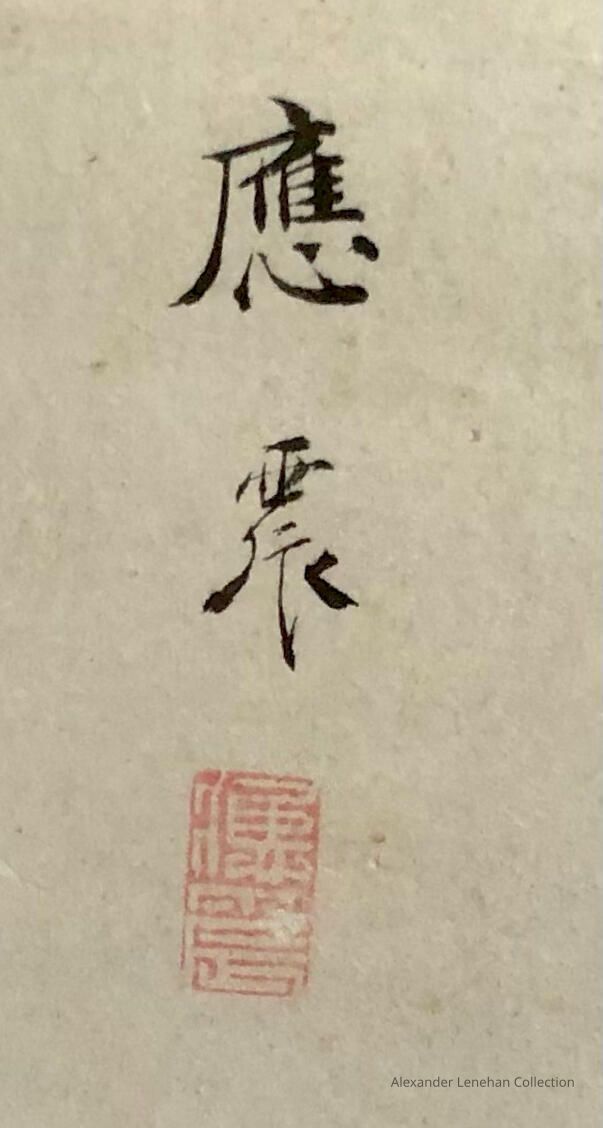 應
震
Alexander Lenehan Collection